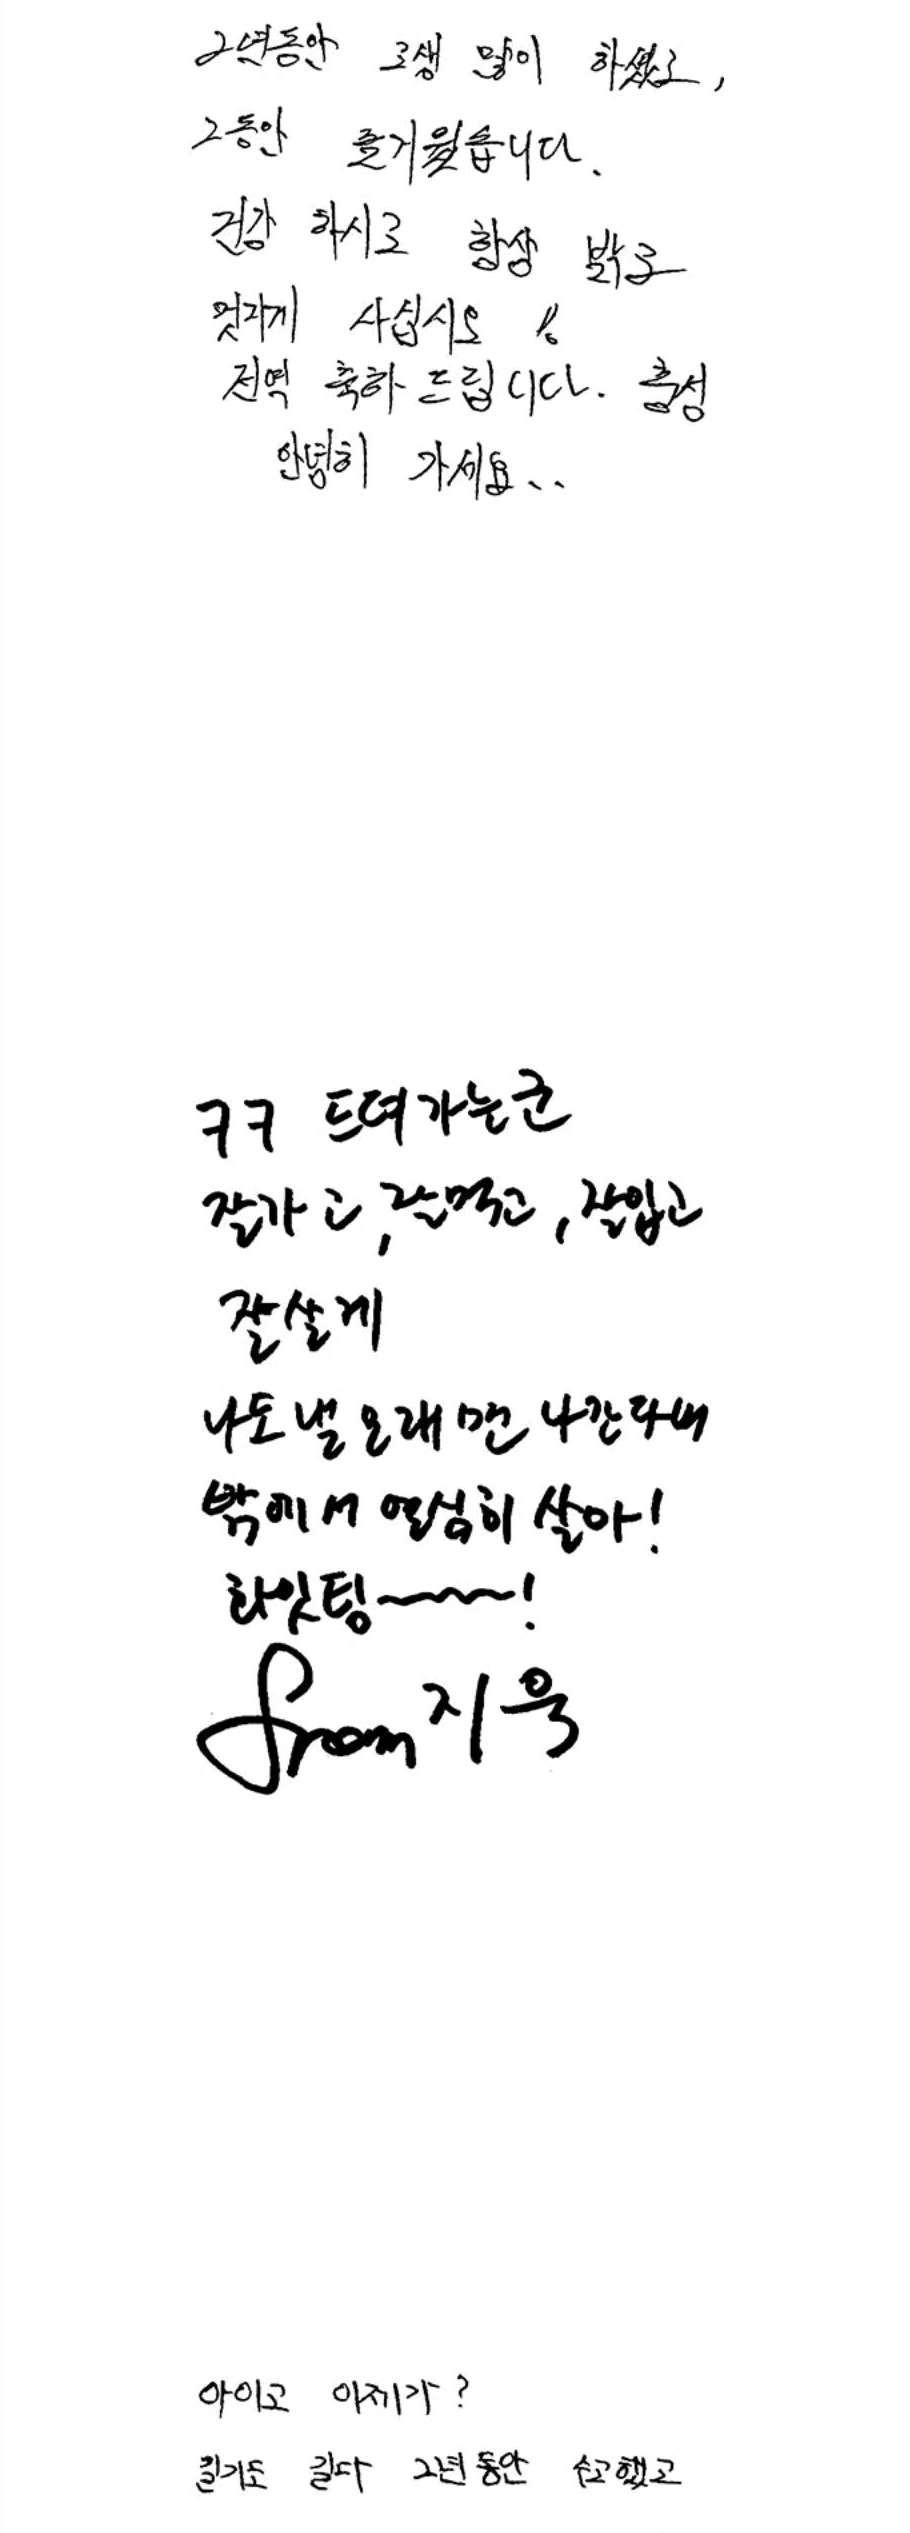 2년동안 고생 많이 하셨고,
그동안 즐거웠습니다.
건강 하시고 항상 밝고
멋지게 사십시오!
전역 축하 드립니다. 충성
안녕히 가세요..
ㅋㅋ 드뎌 가는군
잘가고, 잘먹고, 잘입고
잘살게
나도 낼 모래면 나간다네
밖에서 열심히 살아!
화잇팅~!
from 지욱
아이고 이제가?
길기도 길다 2년동안 수고했고